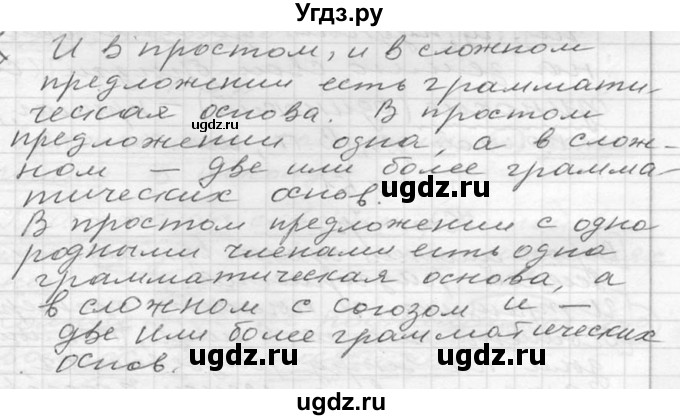 Угдз.ру
И в простом, и в сложном
предложении есть граммати-
ческая основа. В простом
угдз.ру
предложении одна, а в слож-
ном — две или более грамма-
угдз.ру
тических основ.
В простом предложении с одно
родными членами есть одна
грамматическая основа, а
в сложном с союзом и —
две или более грамматических
угдз.ру угдз.ру
основ.
угдз.ру